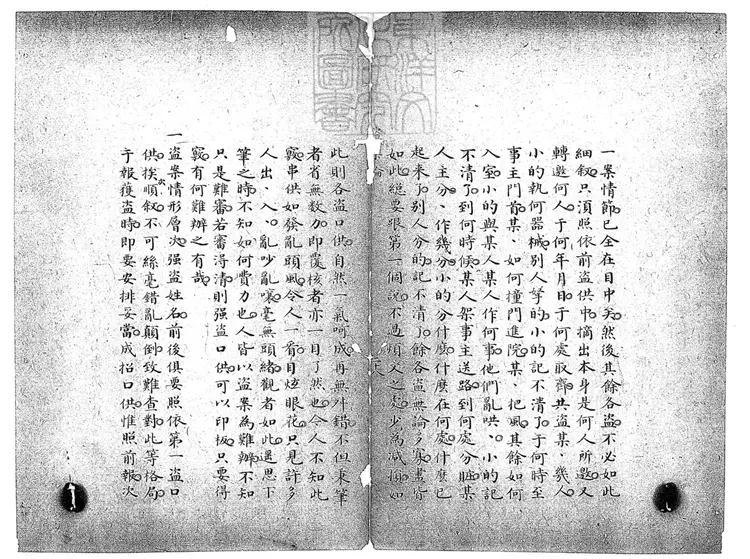 一案情節已全在目中矣然後其餘各盜不必如此
細叙只須照依前盜供中摘出本身是何人所邀又
轉邀何人于何年月日于何處取齊共盜某、幾人
小的執何器械別人拏的小的記不清了于何時至
事主門首某、如何撞門進院某、把風其餘如何
入室小的與某人某人作何事他們亂哄、小的記
不清了到何時候某人架事主送路到何處分賍某
人主分、作幾分小的分什麼什麼在何處什麼已
起來了別人分的記不清了餘各盜無論多寡書皆
如此總要跟第一個説不過煩文之處少為減損如
此則各盜口供自然一氣呵成再無舛錯不但秉筆
者省無数力即覆核者亦一目了然也令人不知此
竅串供如發亂頭風令人一看目炫眼花只見許多
人出、入、亂吵亂嚷毫無頭緒觀者如此遥思下
筆之時不知如何費力也人皆以盜案為難辦不知
只是難審若審得清則强盜口供可以印板只要得
竅有何難辦之有哉
一盜案情形層次强盜姓名前後俱要照依第一盜口
供挨次順叙不可絲毫錯亂顛倒致難查對此等格局
于報獲盜時即要安排妥當成招口供惟照前報次